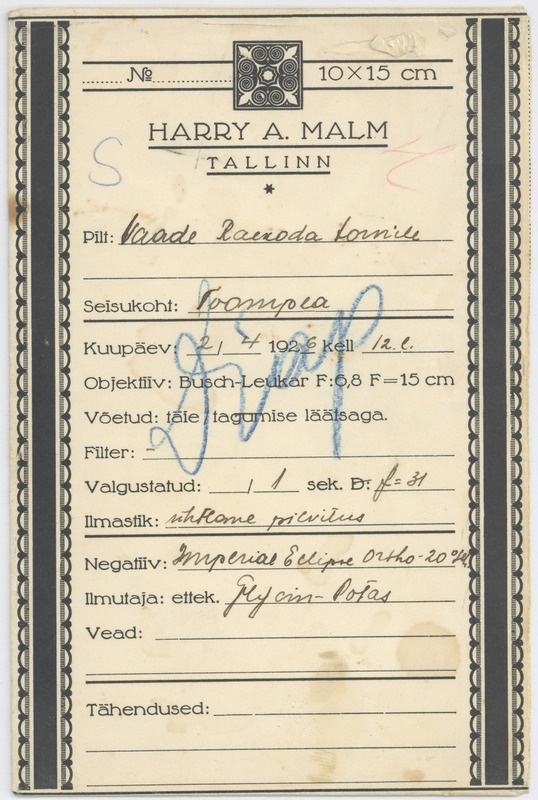 №
10×15 cm
HARRY A. MALM
TALLINN
*
S
Pilt: Vaade Raekoda tornile
Seisukoht: Toompea
Kuupäev: 2/4 1926 kell 12 e.
Diap
Objektiiv: Busch-Leukar F:6,8 F=15 cm
Võetud: täie/tagumise läätsaga.
Filter: -
Valgustatud: /1 sek. D: f=31
Ilmastik: ühtlane pilvitus
Negatiiv: Imperial Eclipse Ortho-20°
Ilmutaja: ettek. Glycin-Potas
Vead:
Tähendused: